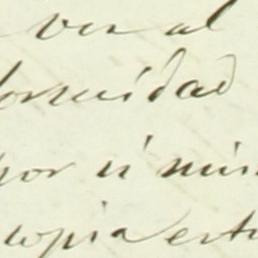 ver al
formidad
por si mis
copia esta